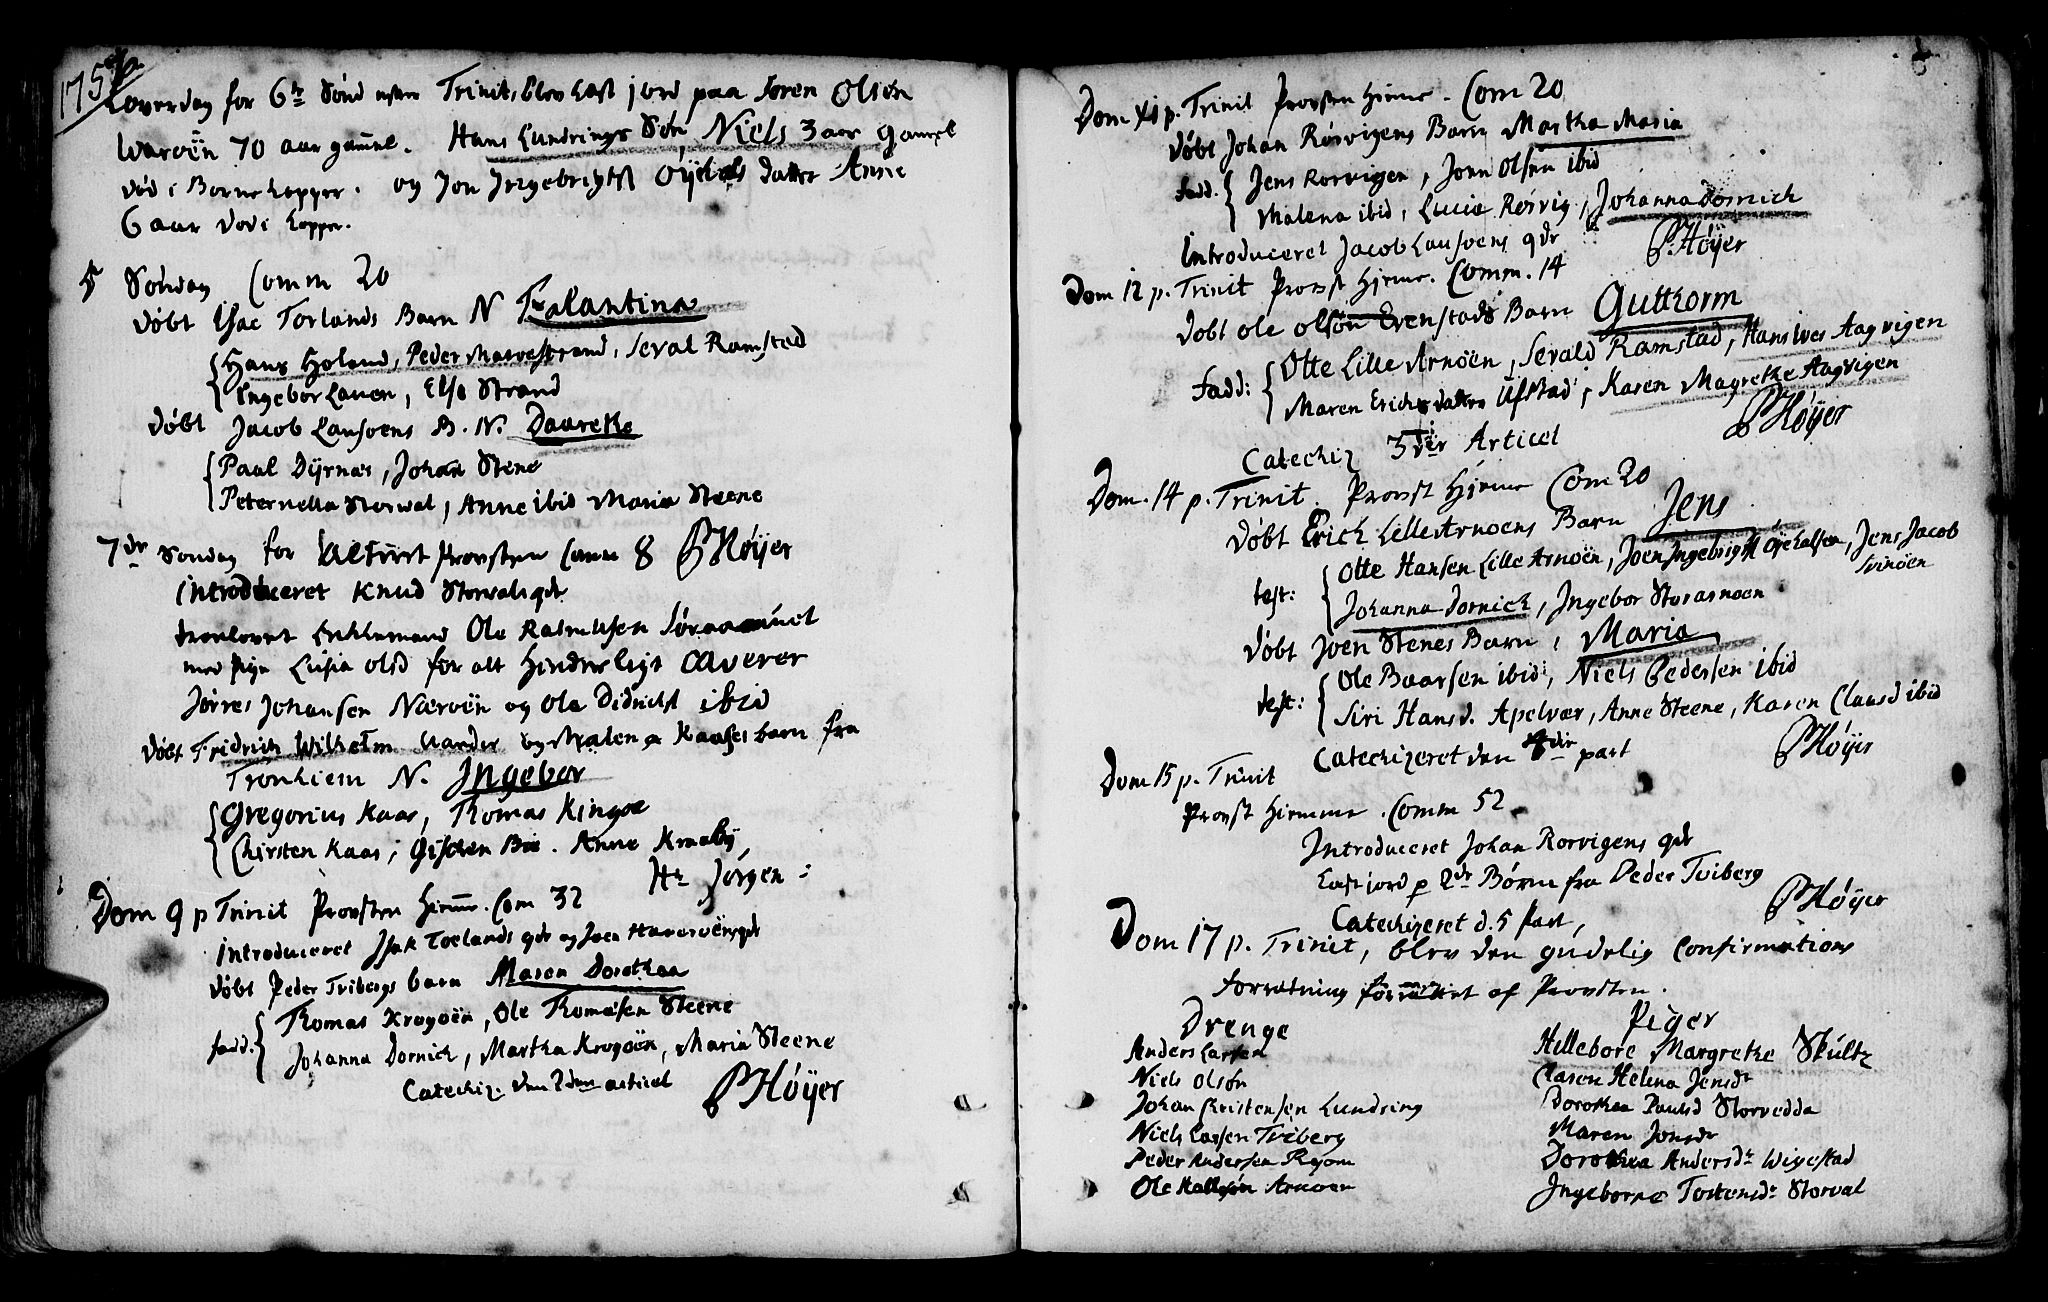 175
Loverdag for 6te Sönd efter Trinit, blev kast jord paa Sören Olsön
Waroën 70 aar gaml. Hans Lundrings Sön Niels 3 aar gamel
död i Borne kopper. og Jon Ingebrigtst Öyehals datter Anne
6 aar död i kopper.
5 Söndag Comm 20
döbt Isac Torlands Barn N Valantina
Hans Holand, Peder Marvestrand, Seval Ramsted
Ingebor Lauen, Else Strand
döbt Jacob Lansoens B. N. Daareke
Paal Dyrnæs, Johan Stene
Peternella Storwal, Anne ibid Maria Steene
7de Sondag for Provsten Comm 8 PHöyer
Introduceret Knud Storvals qdr
trorlovet Enkkemand Ole Rasmusen
med Pige Lusia olsd for alt Hinderligt caverer
Jörres Johansen Næroën og Ole Didrichst ibid
döbt Fridrich Wilhelm Harder og Malena Kaases barn fra
Tronhiem N. Ingebor
Gregorius Kaas, Thomas Kingoe
Chirsten Kaas, Gischen Bie. Anne Kraaby
Hr Jörgen
Dom 9 p Trinit Provsten Hiemme. Com 32
Introduceret Isak Toelands qdr og Joen Haveroënsqdr
döbt Peder Tribergs barn Maren Dorothea
fadd. Thomas Krogoën, Ole Thomesen Steene
Johanna Dornich, Martha Krogoën, Maria Steene
Catechiz. den 2den articel PHöyer
Dom XI p. Trinit Provsten Hiemme. Com 20
döbt Johan Rörvigens Barn Martha Maria
fadd. Jens Rorvigen, Jonn Olsen ibid
Malena ibid, Lucie Rörvig, Johanna Dornich
Introduceret Jacob Lansoens qdr PHöyer
Dom 12 p. Trinit Provst Hjemme. Comm. 14
döbt Ole Olsön Evenstads Barn Gutthorm
fadd: Otte Lille Arnöen, Sevald Ramstad, Hans Ives Aagvigen
Maren Erichsdatter Ufstad, Karen Magrethe Aagvigen
PHöyer
Catechiz 3der Articel
Dom. 14 p. Trinit. Provst Hjemme Com 20
döbt Erich Lille Arnoens Barn Jens
test: Otte Hansen Lille Arnoën, Joen Ingebrigtst Öyehalsen, Jens Jacob
Svinöen
Johanna Dornich, Ingebor Storarnoen
döbt Joen Stenes Barn, Maria
test: Ole Baarsen ibid, Niels Pedersen ibid
Siri Hansd. Apelvær, Anne Steene, Karen Clausd ibid
Catechizeret den 4de part PHöyer
Dom 15 p. Trinit
Provst Hiemme. Comm 52
Introduceret Johan Rorvigens qdr
Cast jord p 2de Börn fra Peder Tviberg
Catechizeret d. 5 Part, PHöyer
Dom 17 p. Trinit, blev den gudelig Confirmations
forretning af Provsten.
Drenge
Anders Larsen
Niels Olsön
Johan Christensen Lundring
Niels Larsen Triberg
Peder Andersen Rejom
Ole Hallesön Arnoen
Piger
Hillebore Margrethe Skültz
Claren Helena Jensdr
Dorothea Paulsd Storvedda
Maren Jonsdr
Dorothea Andersdr Wigestad
Ingeborre Tostensdr Storval